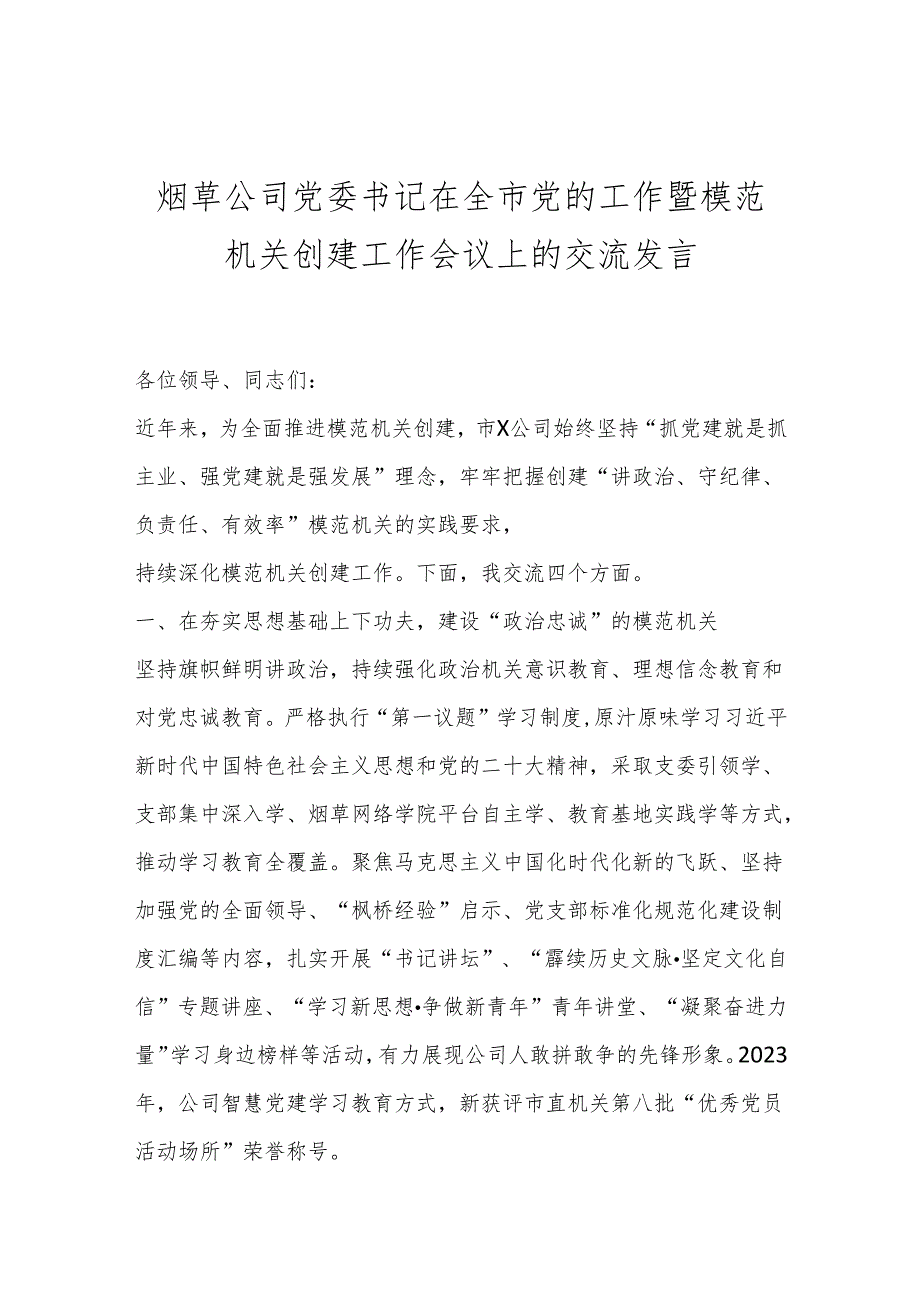 烟草公司党委书记在全市党的工作暨模范
机关创建工作会议上的交流发言
各位领导、同志们：
近年来，为全面推进模范机关创建，市X公司始终坚持“抓党建就是抓
主业、强党建就是强发展”理念，牢牢把握创建“讲政治、守纪律、
负责任、有效率”模范机关的实践要求，
持续深化模范机关创建工作。下面，我交流四个方面。
一、在夯实思想基础上下功夫，建设“政治忠诚”的模范机关
坚持旗帜鲜明讲政治，持续强化政治机关意识教育、理想信念教育和
对党忠诚教育。严格执行“第一议题”学习制度,原汁原味学习习近平
新时代中国特色社会主义思想和党的二十大精神，采取支委引领学、
支部集中深入学、烟草网络学院平台自主学、教育基地实践学等方式，
推动学习教育全覆盖。聚焦马克思主义中国化时代化新的飞跃、坚持
加强党的全面领导、“枫桥经验”启示、党支部标准化规范化建设制
度汇编等内容，扎实开展“书记讲坛”、“霹续历史文脉•坚定文化自
信”专题讲座、“学习新思想•争做新青年”青年讲堂、“凝聚奋进力
量”学习身边榜样等活动,有力展现公司人敢拼敢争的先锋形象。2023
年，公司智慧党建学习教育方式，新获评市直机关第八批“优秀党员
活动场所”荣誉称号。